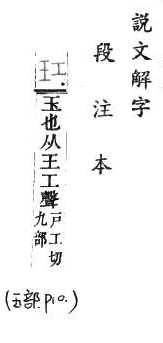 說文解字
段注本
玒
玉也从王工聲
戶工切
九部
(玉部.P10.)